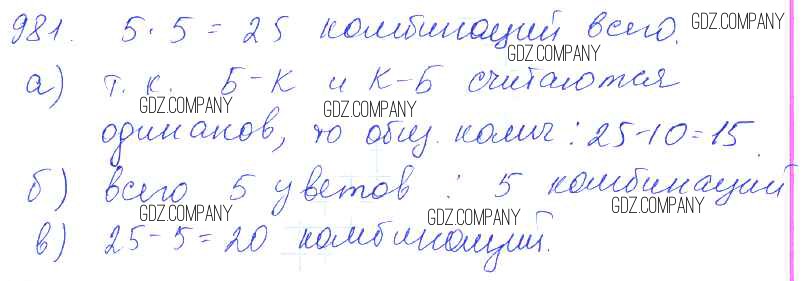 981. 5·5=25 комбинаций всего.
GDZ.COMPANY GDZ.COMPANY
а) т.к. Б-К и К-Б считаются
GDZ.COMPANY GDZ.COMPANY
одинаков, то общ. колич: 25-10=15.
GDZ.COMPANY
б) всего 5 цветов : 5 комбинаций
GDZ.COMPANY GDZ.COMPANY GDZ.COMPANY
в) 25-5=20 комбинаций.